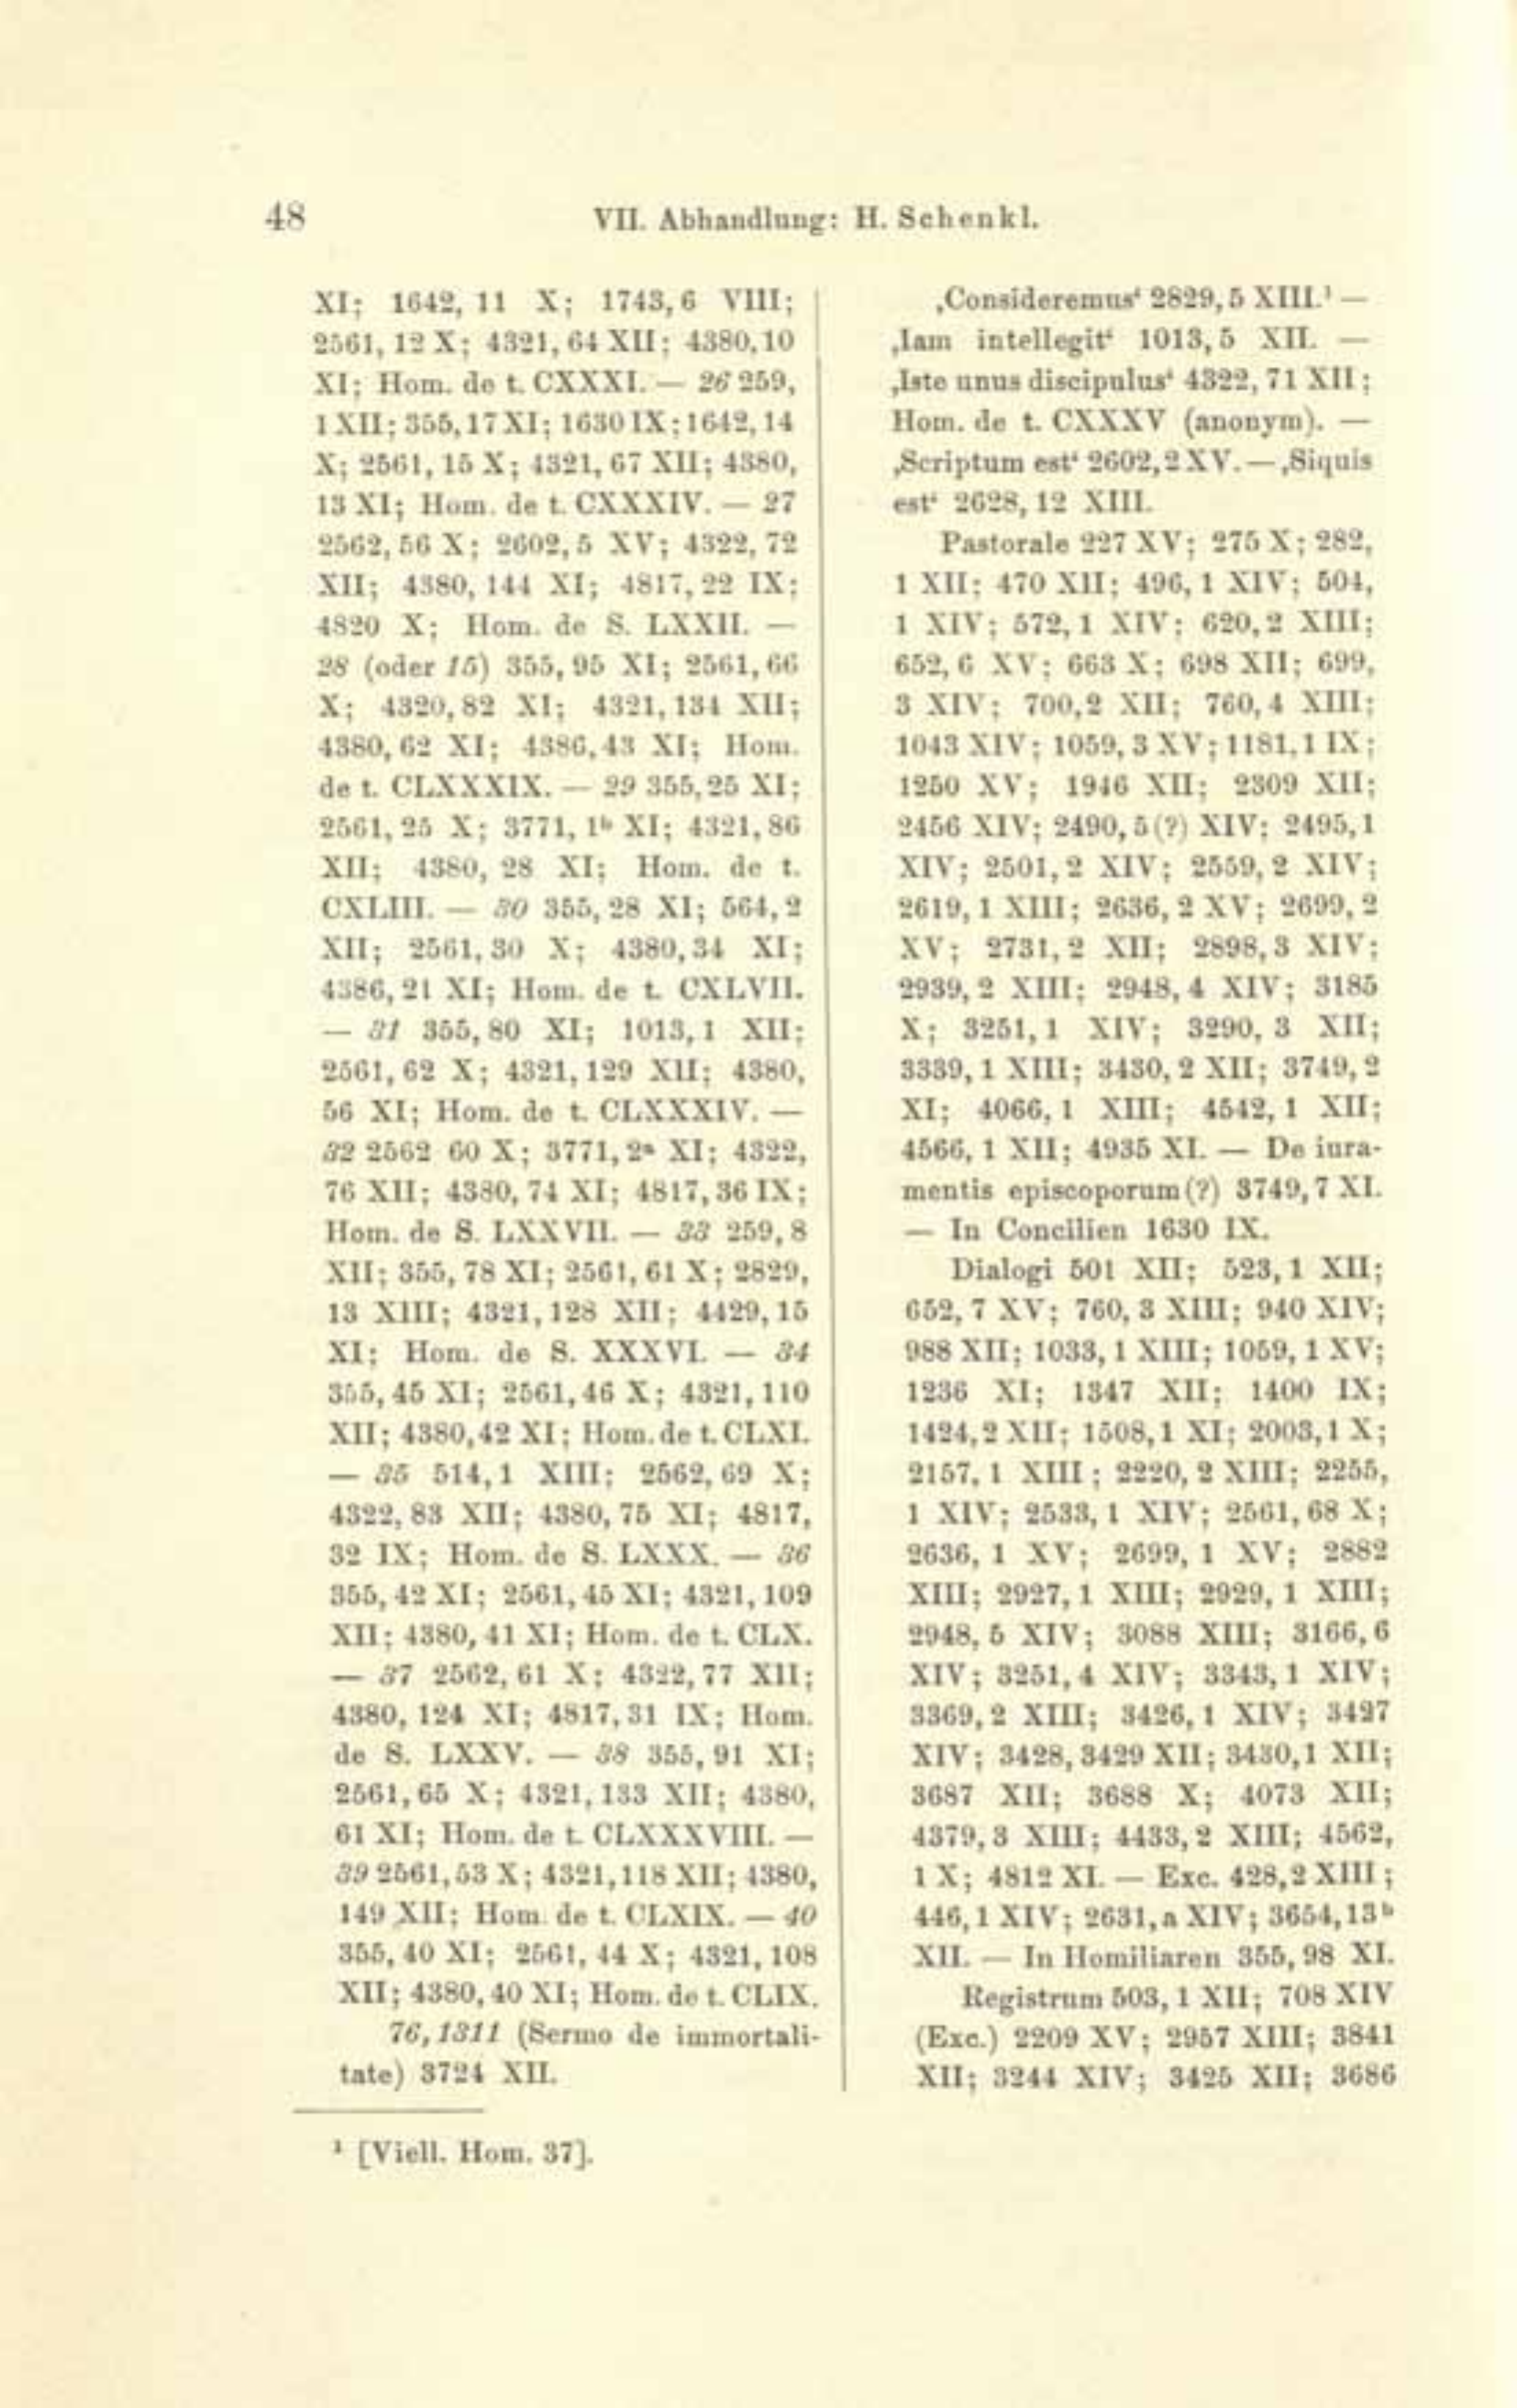 48
VII. Abhandlung: H. Schenkl.
XI; 1642, 11 X; 1743, 6 VIII;
2561, 12 X; 4321, 64 XII; 4380, 10
XI; Hom. de t. CXXXI. — 26 259,
1 XII; 355, 17 XI; 1630 IX; 1642, 14
X; 2561, 15 X; 4321, 67 XII; 4380,
13 XI; Hom. de t. CXXXIV. — 27
2562, 56 X; 2602, 5 XV; 4322, 72
XII; 4380, 144 XI; 4817, 22 IX;
4820 X; Hom. de S. LXXII. —
28 (oder 15) 355, 95 XI; 2561, 66
X; 4320, 82 XI; 4321, 134 XII;
4380, 62 XI; 4386, 43 XI; Hom.
de t. CLXXXIX. — 29 355, 25 XI;
2561, 25 X; 3771, 1ᵇ XI; 4321, 86
XII; 4380, 28 XI; Hom. de t.
CXLIII. — 30 355, 28 XI; 564, 2
XII; 2561, 30 X; 4380, 34 XI;
4386, 21 XI; Hom. de t. CXLVII.
— 31 355, 80 XI; 1013, 1 XII;
2561, 62 X; 4321, 129 XII; 4380,
56 XI; Hom. de t. CLXXXIV. —
32 2562 60 X; 3771, 2ᵃ XI; 4322,
76 XII; 4380, 74 XI; 4817, 36 IX;
Hom. de S. LXXVII. — 33 259, 8
XII; 355, 78 XI; 2561, 61 X; 2829,
13 XIII; 4321, 128 XII; 4429, 15
XI; Hom. de S. XXXVI. — 34
355, 45 XI; 2561, 46 X; 4321, 110
XII; 4380, 42 XI; Hom. de t. CLXI.
— 35 514, 1 XIII; 2562, 69 X;
4322, 83 XII; 4380, 75 XI; 4817,
32 IX; Hom. de S. LXXX. — 36
355, 42 XI; 2561, 45 XI; 4321, 109
XII; 4380, 41 XI; Hom. de t. CLX.
— 37 2562, 61 X; 4322, 77 XII;
4380, 124 XI; 4817, 31 IX; Hom.
de S. LXXV. — 38 355, 91 XI;
2561, 65 X; 4321, 133 XII; 4380,
61 XI; Hom. de t. CLXXXVIII. —
39 2561, 53 X; 4321, 118 XII; 4380,
149 XII; Hom. de t. CLXIX. — 40
355, 40 XI; 2561, 44 X; 4321, 108
XII; 4380, 40 XI; Hom. de t. CLIX.
76, 1311 (Sermo de immortali-
tate) 3724 XII.
‚Consideremus‘ 2829, 5 XIII.¹ —
‚Iam intellegit‘ 1013, 5 XII. —
‚Iste unus discipulus‘ 4322, 71 XII;
Hom. de t. CXXXV (anonym). —
‚Scriptum est‘ 2602, 2 XV. — ‚Siquis
est‘ 2628, 12 XIII.
Pastorale 227 XV; 275 X; 282,
1 XII; 470 XII; 496, 1 XIV; 504,
1 XIV; 572, 1 XIV; 620, 2 XIII;
652, 6 XV; 663 X; 698 XII; 699,
3 XIV; 700, 2 XII; 760, 4 XIII;
1043 XIV; 1059, 3 XV; 1181, 1 IX;
1250 XV; 1946 XII; 2309 XII;
2456 XIV; 2490, 5 (?) XIV; 2495, 1
XIV; 2501, 2 XIV; 2559, 2 XIV;
2619, 1 XIII; 2636, 2 XV; 2699, 2
XV; 2731, 2 XII; 2898, 3 XIV;
2939, 2 XIII; 2948, 4 XIV; 3185
X; 3251, 1 XIV; 3290, 3 XII;
3339, 1 XIII; 3430, 2 XII; 3749, 2
XI; 4066, 1 XIII; 4542, 1 XII;
4566, 1 XII; 4935 XI. — De iura-
mentis episcoporum (?) 3749, 7 XI.
— In Concilien 1630 IX.
Dialogi 501 XII; 523, 1 XII;
652, 7 XV; 760, 3 XIII; 940 XIV;
988 XII; 1033, 1 XIII; 1059, 1 XV;
1236 XI; 1347 XII; 1400 IX;
1424, 2 XII; 1508, 1 XI; 2003, 1 X;
2157, 1 XIII; 2220, 2 XIII; 2255,
1 XIV; 2533, 1 XIV; 2561, 68 X;
2636, 1 XV; 2699, 1 XV; 2882
XIII; 2927, 1 XIII; 2929, 1 XIII;
2948, 5 XIV; 3088 XIII; 3166, 6
XIV; 3251, 4 XIV; 3343, 1 XIV;
3369, 2 XIII; 3426, 1 XIV; 3427
XIV; 3428, 3429 XII; 3430, 1 XII;
3687 XII; 3688 X; 4073 XII;
4379, 3 XIII; 4433, 2 XIII; 4562,
1 X; 4812 XI. — Exc. 428, 2 XIII;
446, 1 XIV; 2631, a XIV; 3654, 13ᵇ
XII. — In Homiliaren 355, 98 XI.
Registrum 503, 1 XII; 708 XIV
(Exc.) 2209 XV; 2957 XIII; 3841
XII; 3244 XIV; 3425 XII; 3686
¹ [Viell. Hom. 37].